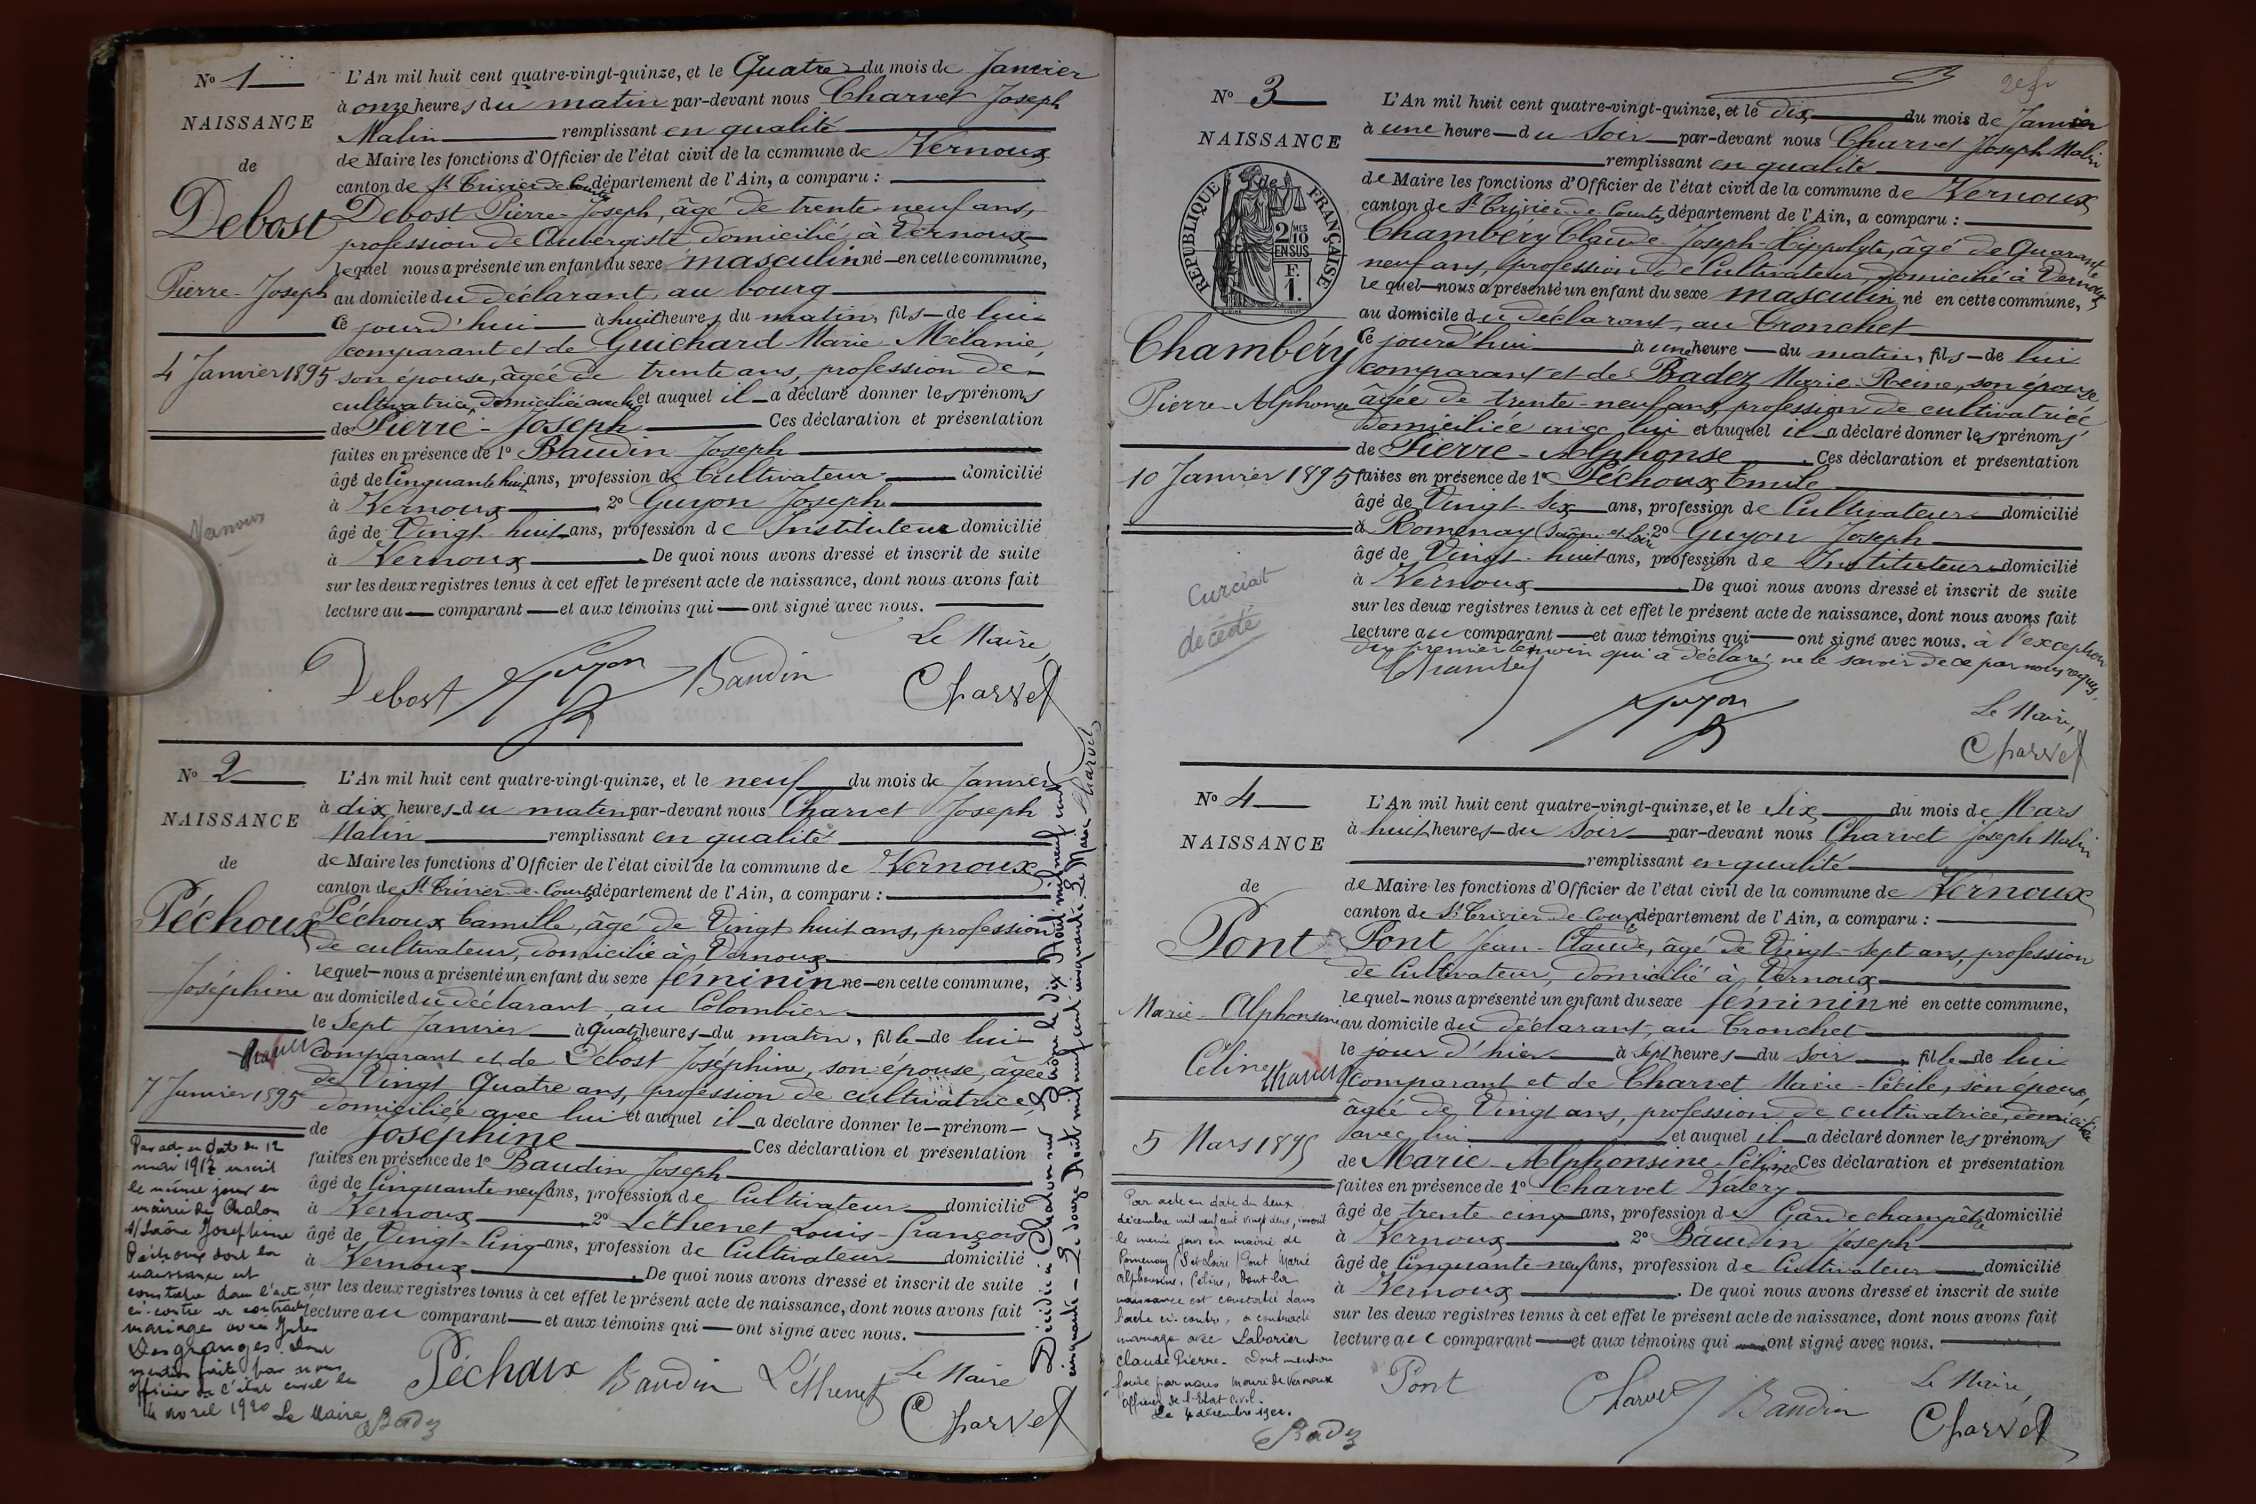 No 1
NAISSANCE
de
Debost
Pierre-Joseph
4 Janvier 1895
Vernoux
L'An mil huit cent quatre-vingt-quinze, et le Quatre du mois de Janvier
à onze heures du matin par-devant nous Charvet Joseph
Malin remplissant en qualité
de Maire les fonctions d'Officier de l'état civil de la commune de Vernoux
canton de St Trivier de Courtes département de l'Ain, a comparu :
Debost Pierre-Joseph, âgé de trente-neuf ans,
profession de Aubergiste domicilié à Vernoux
lequel nous a présenté un enfant du sexe masculin né en cette commune,
au domicile du déclarant, au bourg
ce jourd'hui à huit heures du matin, fils de lui
comparant et de Guichard Marie Mélanie,
son épouse, âgée de trente ans, profession de
cultivatrice, domiciliée avec lui et auquel il a déclaré donner les prénoms
de Pierre-Joseph Ces déclaration et présentation
faites en présence de 1º Baudin Joseph
âgé de Cinquante huit ans, profession de Cultivateur domicilié
à Vernoux 2º Guyon Joseph
âgé de Vingt-huit ans, profession de Instituteur domicilié
à Vernoux De quoi nous avons dressé et inscrit de suite
sur les deux registres tenus à cet effet le présent acte de naissance, dont nous avons fait
lecture au comparant et aux témoins qui ont signé avec nous.
Le Maire,
Debost Guyon Baudin Charvet
No 2
NAISSANCE
de
Péchoux
Joséphine
7 Janvier 1895
Par acte en date du 12
mars 1912 inscrit
le même jour en
mairie de Chalon
s/Saône Josephine
Péchoux dont la
naissance est
constatée dans l'acte
ci-contre a contracté
mariage avec Jules
Desgranges. Dont
mention faite par nous
officier de l'état civil le
14 avril 1920 Le Maire
Badez
L'An mil huit cent quatre-vingt-quinze, et le neuf du mois de Janvier
à dix heures du matin par-devant nous Charvet Joseph
Malin remplissant en qualité
de Maire les fonctions d'Officier de l'état civil de la commune de Vernoux
canton de St Trivier-de-Courtes département de l'Ain, a comparu :
Péchoux Camille, âgé de Vingt huit ans, profession
de cultivateur, domicilié à Vernoux
lequel nous a présenté un enfant du sexe féminin né en cette commune,
au domicile du déclarant, au Colombier
le Sept Janvier à quatre heures du matin, fille de lui
comparant et de Debost Joséphine, son épouse, âgée
de Vingt Quatre ans, profession de cultivatrice,
domiciliée avec lui et auquel il a déclaré donner le prénom
de Joséphine Ces déclaration et présentation
faites en présence de 1º Baudin Joseph
âgé de Cinquante-neuf ans, profession de Cultivateur domicilié
à Vernoux 2º Léthenet Louis-François
âgé de Vingt-Cinq ans, profession de Cultivateur domicilié
à Vernoux De quoi nous avons dressé et inscrit de suite
sur les deux registres tenus à cet effet le présent acte de naissance, dont nous avons fait
lecture au comparant et aux témoins qui ont signé avec nous.
Péchoux Baudin Léthenet Le Maire
Charvet
Décédée à Chalon sur Saône le dix Août mil neuf cent
cinquante - Le douze Août mil neuf cent cinquante. Le Maire
No 3
NAISSANCE
de
RÉPUBLIQUE FRANÇAISE
2/10 MES
EN SUS
F.
1.
Chambéry
Pierre-Alphonse
10 Janvier 1895
Curciat
décédé
L'An mil huit cent quatre-vingt-quinze, et le dix du mois de Janvier
à une heure du Soir par-devant nous Charvet Joseph Malin
remplissant en qualité
de Maire les fonctions d'Officier de l'état civil de la commune de Vernoux
canton de St Trivier-de-Courtes département de l'Ain, a comparu :
Chambéry Claude Joseph-Hippolyte, âgé de Quarante
neuf ans, profession de Cultivateur, domicilié à Vernoux
lequel nous a présenté un enfant du sexe masculin né en cette commune,
au domicile du déclarant, au Tronchet
ce jourd'hui à une heure du matin, fils de lui
comparant et de Badez Marie-Reine, son épouse
âgée de trente-neuf ans, profession de cultivatrice
domiciliée avec lui et auquel il a déclaré donner les prénoms
de Pierre-Alphonse Ces déclaration et présentation
faites en présence de 1º Péchoux Emile
âgé de Vingt-Six ans, profession de Cultivateur domicilié
à Romenay (Saône-et-Loire) 2º Guyon Joseph
âgé de Vingt-huit ans, profession de Instituteur domicilié
à Vernoux De quoi nous avons dressé et inscrit de suite
sur les deux registres tenus à cet effet le présent acte de naissance, dont nous avons fait
lecture au comparant et aux témoins qui ont signé avec nous. à l'exception
du premier témoin qui a déclaré ne le savoir de ce par nous requis.
Chambéry
Guyon
Le Maire,
Charvet
No 4
NAISSANCE
de
Pont
Marie-Alphonsine
Céline
5 Mars 1895
Par acte en date du deux
décembre mil neuf cent vingt deux, inscrit
le même jour en mairie de
Romenay (S et Loire) Pont Marie
Alphonsine, Céline, dont la
naissance est constatée dans
l'acte ci-contre, a contracté
mariage avec Laborier
Claude Pierre. Dont mention
faite par nous maire de Vernoux
officier de l'Etat civil.
Le 4 décembre 1922.
Badez
L'An mil huit cent quatre-vingt-quinze, et le Six du mois de Mars
à huit heures du Soir par-devant nous Charvet Joseph Malin
remplissant en qualité
de Maire les fonctions d'Officier de l'état civil de la commune de Vernoux
canton de St Trivier-de-Courtes département de l'Ain, a comparu :
Pont Jean-Claude, âgé de Vingt-Sept ans, profession
de Cultivateur, domicilié à Vernoux
lequel nous a présenté un enfant du sexe féminin né en cette commune,
au domicile du déclarant, au Tronchet
le jour d'hier à sept heures du soir, fille de lui
comparant et de Charvet Marie-Cécile, son épouse,
âgée de Vingt ans, profession de cultivatrice, domiciliée
avec lui et auquel il a déclaré donner les prénoms
de Marie-Alphonsine-Céline Ces déclaration et présentation
faites en présence de 1º Charvet Valéry
âgé de trente-cinq ans, profession de Garde champêtre domicilié
à Vernoux 2º Baudin Joseph
âgé de Cinquante-neuf ans, profession de Cultivateur domicilié
à Vernoux. De quoi nous avons dressé et inscrit de suite
sur les deux registres tenus à cet effet le présent acte de naissance, dont nous avons fait
lecture au comparant et aux témoins qui ont signé avec nous.
Pont Charvet Baudin Le Maire,
Charvet